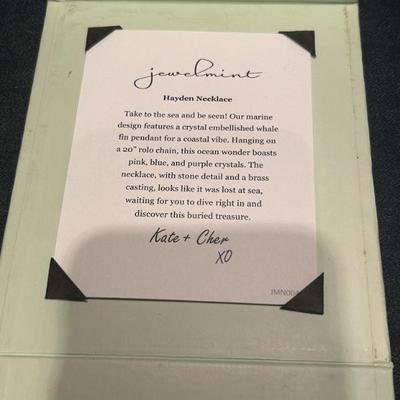 jewelmint
Hayden Necklace
Take to the sea and be seen! Our marine
design features a crystal embellished whale
fin pendant for a coastal vibe. Hanging on
a 20" rolo chain, this ocean wonder boasts
pink, blue, and purple crystals. The
necklace, with stone detail and a brass
casting, looks like it was lost at sea,
waiting for you to dive right in and
discover this buried treasure.
Kate + Cher
XO